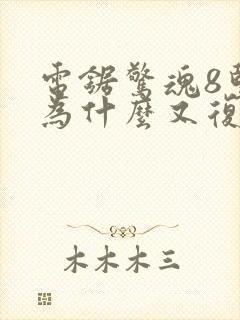 電鋸驚魂8
為什麼又復
木木木三